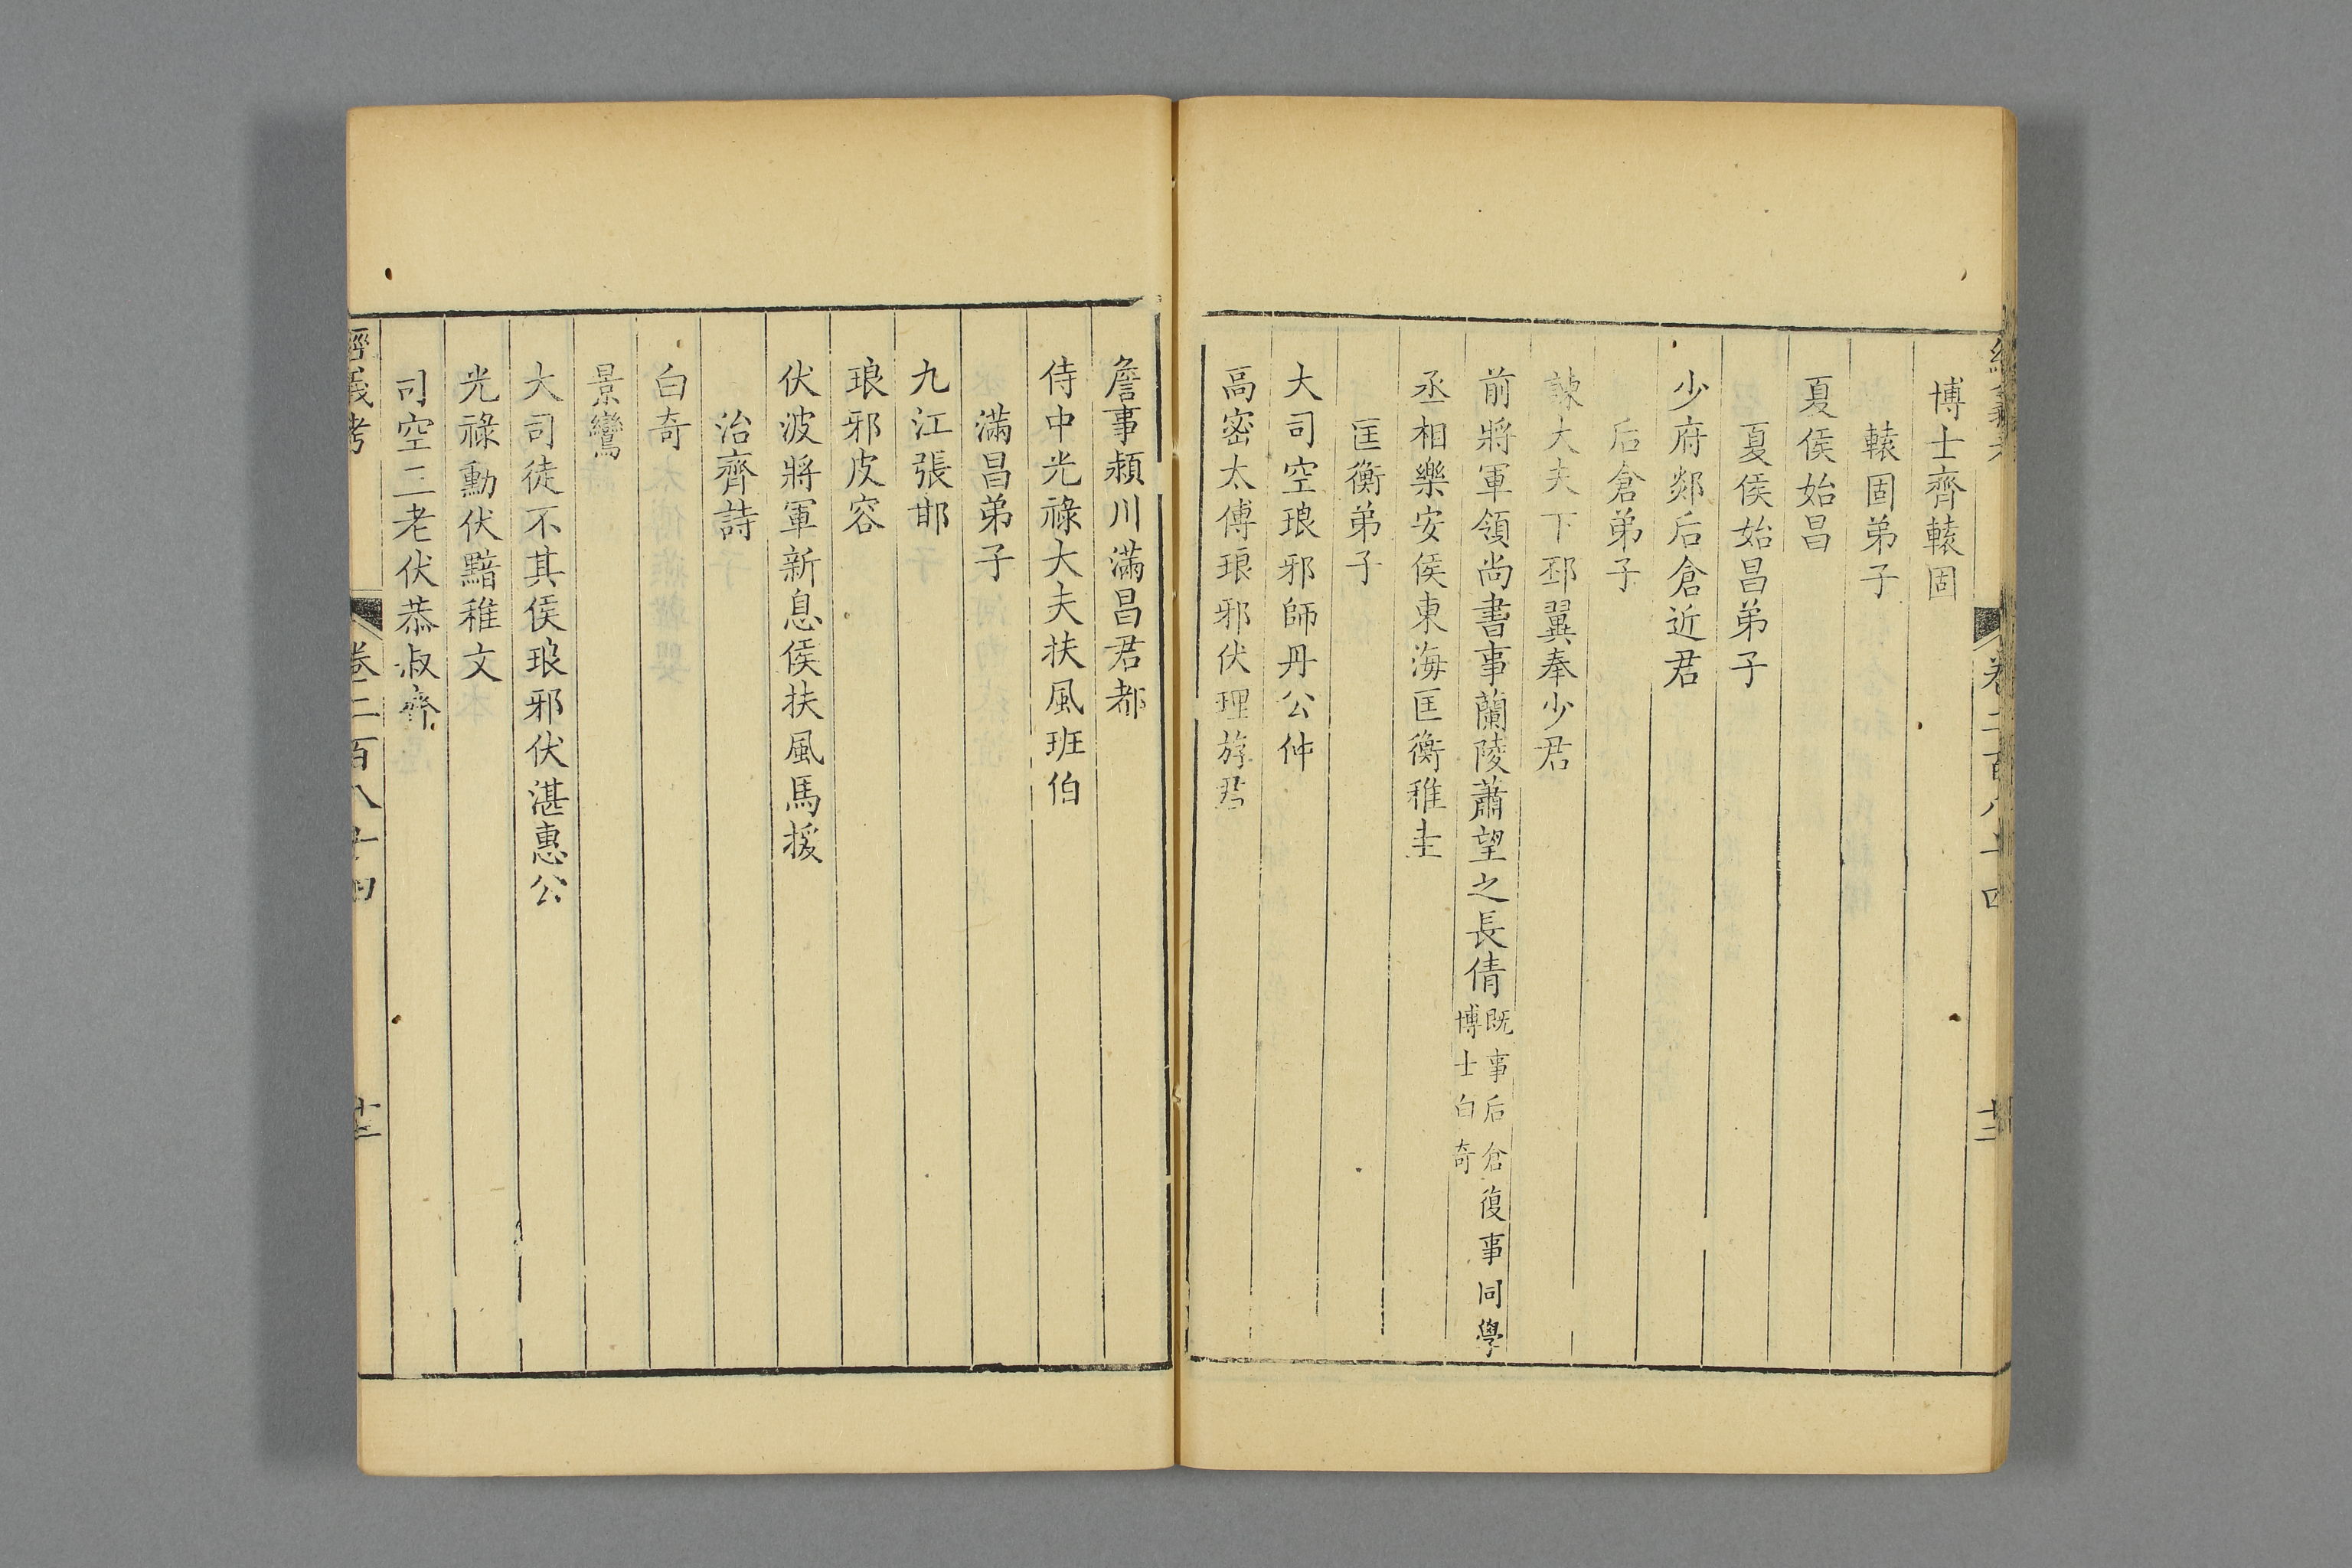 博士齊轅固
轅固弟子
夏侯始昌
夏侯始昌弟子
少府郯后倉近君
后倉弟子
諫大夫下邳翼奉少君
前將軍領尚書事蘭陵蕭望之長倩既事后倉復事同學博士白奇
丞相樂安侯東海匡衡稚圭
匡衡弟子
大司空琅邪師丹公仲
高密太傅琅邪伏理斿君
詹事潁川滿昌君都
侍中光祿大夫扶風班伯
滿昌弟子
九江張邯
琅邪皮容
伏波將軍新息侯扶風馬援
治齊詩
白奇
景鸞
大司徒不其侯琅邪伏湛惠公
光祿勳伏黯稚文
司空三老伏恭叔齊
經義考
卷二百八十四